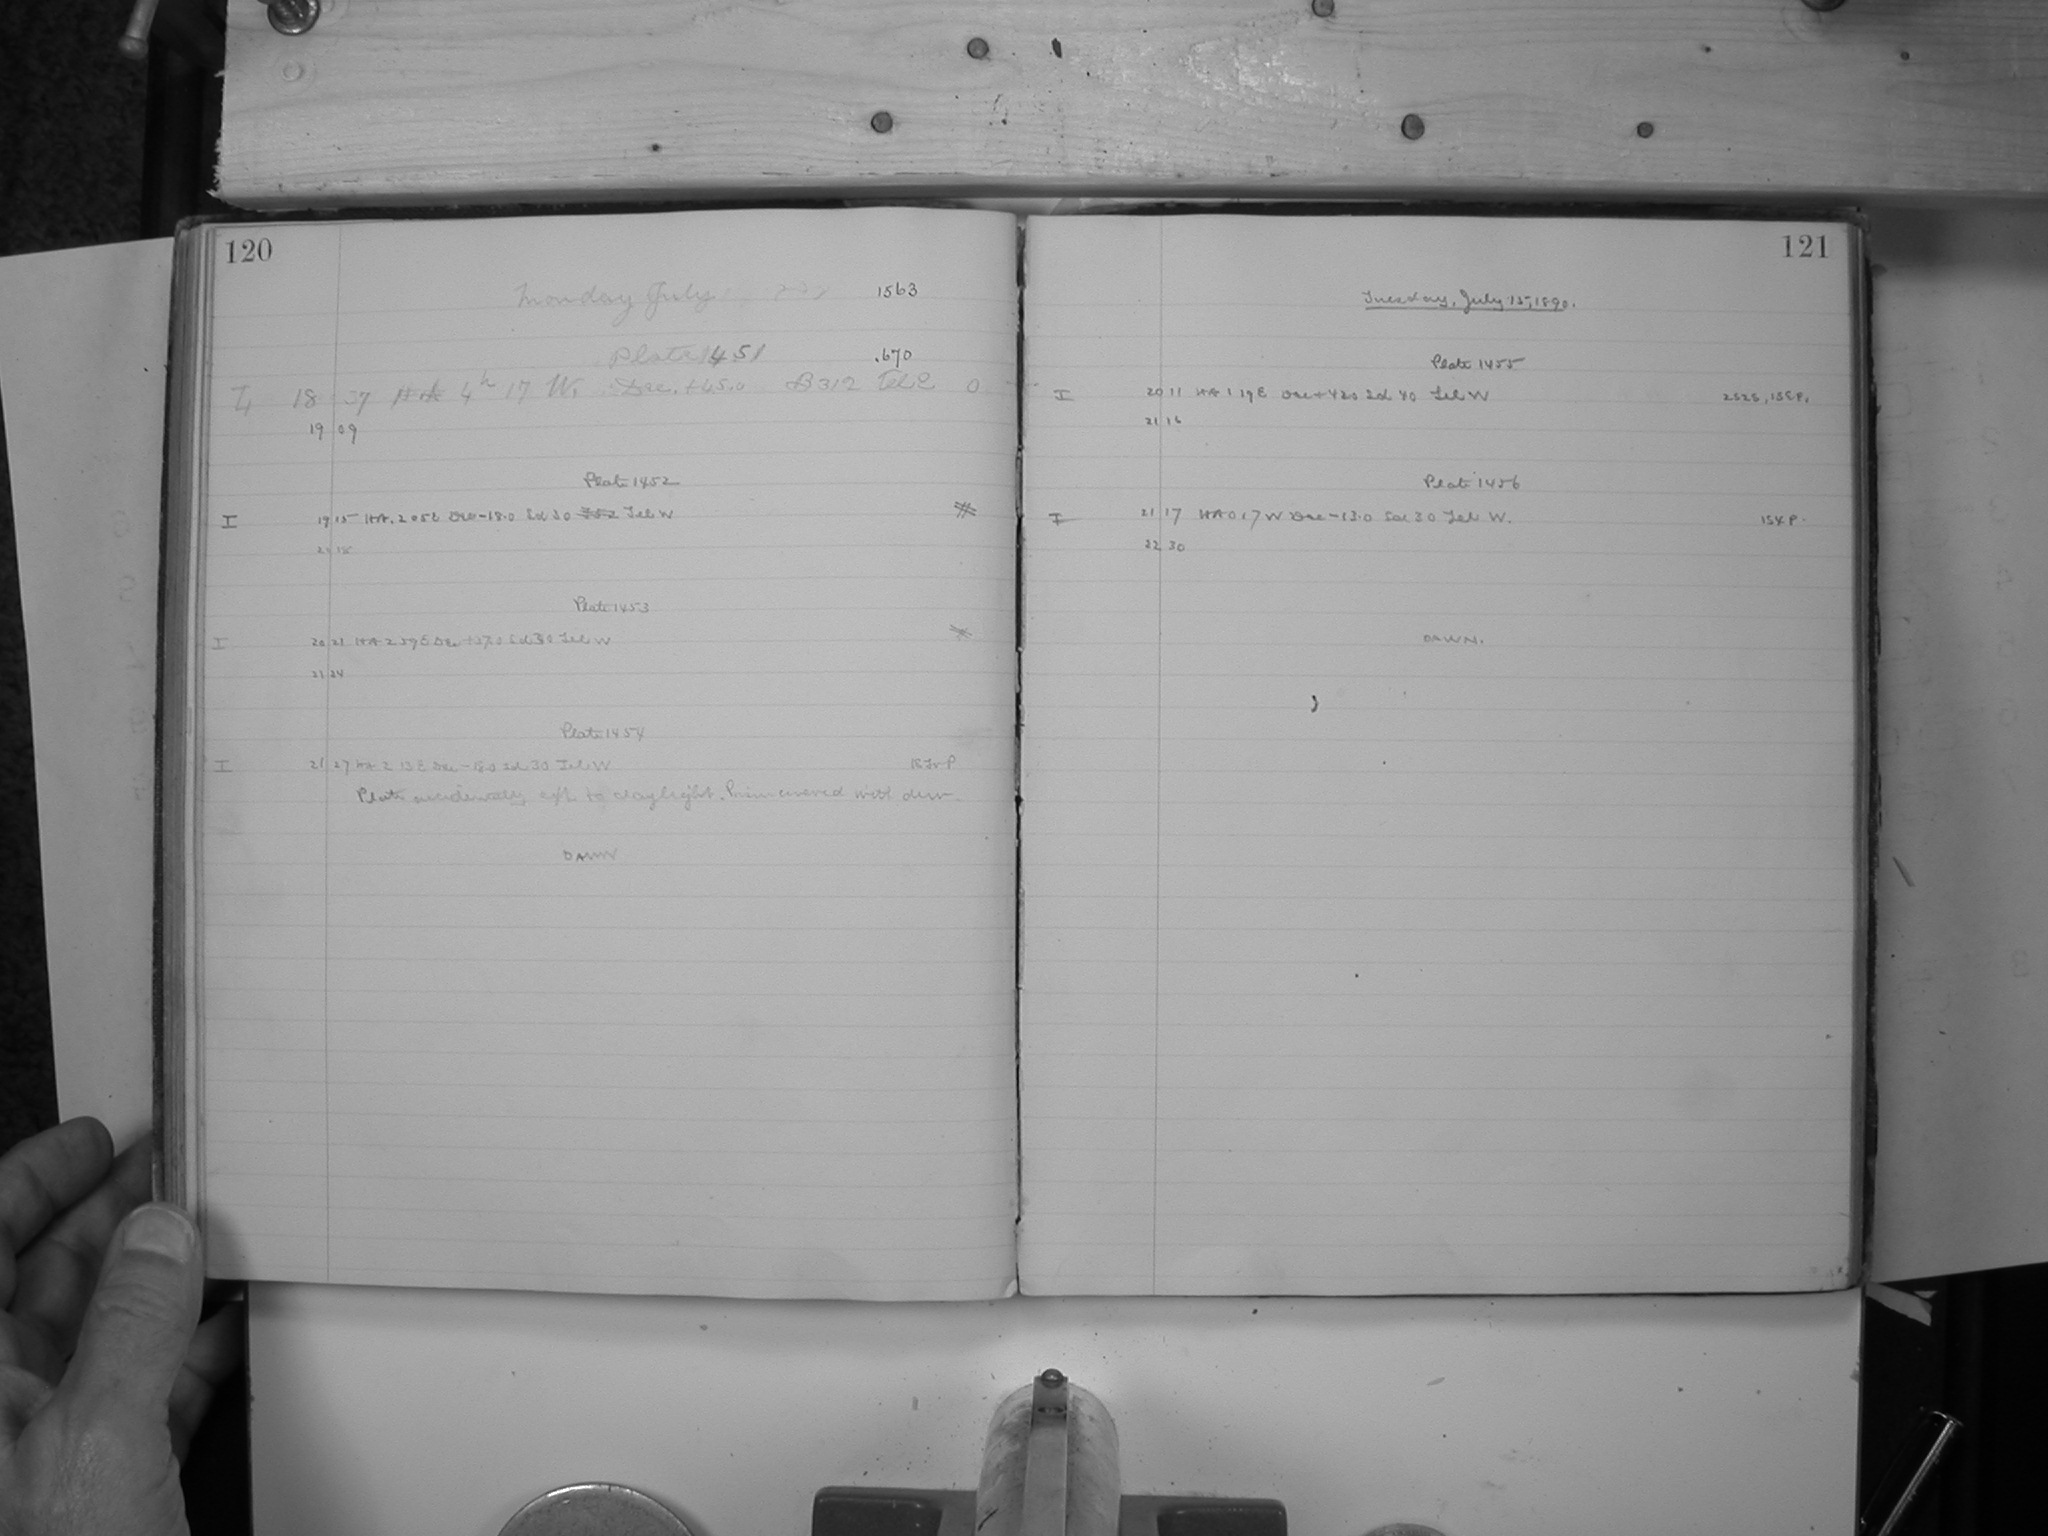 120
Monday July 1563
Plate 1451 .670
I 18 37 HA 4h 17 W. Dec. +45.0 B312 Tel E 0
19 09
Plate 1452
I 19 15 HA. 2 05 E Dec -18.0 Sid 30 Tel W
21 18
Plate 1453
I 20 21 HA 2 59 E Dec Sid 30 Tel W
21 24
Plate 1454
I 21 27 HA 2 13 E Dec -18.0 Sid 30 Tel W
Plate accidentally exp. to daylight. Prism covered with dew.
DAWN
121
Tuesday, July 15, 1890.
Plate 1455
I 20 11 HA 1 19 E Dec +42.0 Sid 40 Tel W
21 16
Plate 1456
I 21 17 HA 0 17 W Dec -13.0 Sid 30 Tel W.
22 30
DAWN.